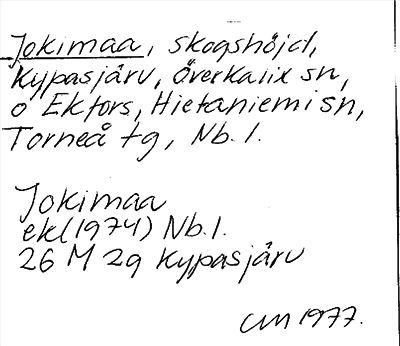 Jokimaa, skogshöjd,
Kypasjärv, Överkalix sn,
o Ekfors, Hietaniemi sn,
Torneå tg, Nb. l.
Jokimaa
ek (1974) Nb. l.
26 M 2g Kypasjärv
CM 1977.